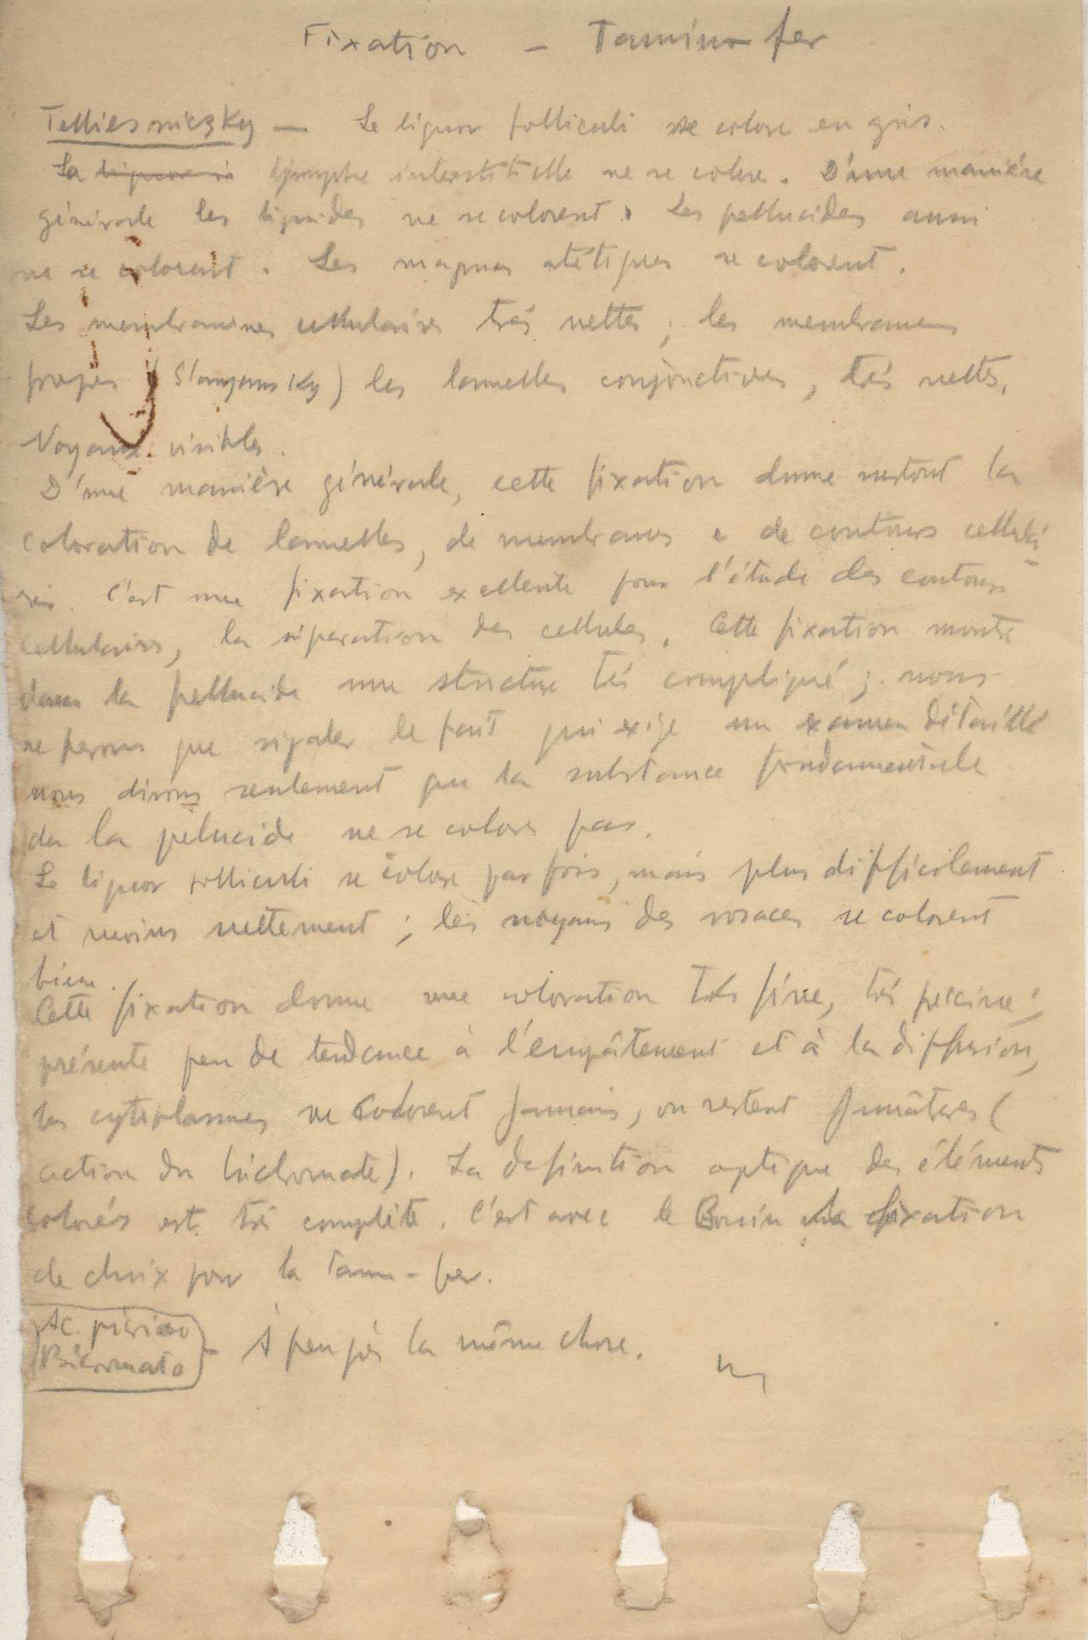 Fixation – Tannin-fer
Telliesniczky — Le liquor folliculi se colore en gris.
La lymphe interstitielle ne se colore. D'une manière
générale les liquides ne se colorent. Les pellucides aussi
ne se colorent. Les se colorent.
Les membranes cellulaires très nettes ; les membranes
propres (Slawjansky) les lamelles conjonctives, très nettes.
Noyaux visibles.
D'une manière générale, cette fixation donne surtout la
coloration de lamelles, de membranes e de contours cellulai
res. C'est une fixation excellente pour l'étude des contours
cellulaires, la séparation des cellules. Cette fixation montre
dans la pellucide une structure très compliqué ; nous
ne ferons que signaler le fait qui exige un examen détaillé
nous dirons seulement que la substance fondamentale
de la pelucide ne se colore pas.
Le liquor folliculi se colore parfois, mais plus difficilement
et moins nettement ; les noyaux des rosaces se colorent
bien.
Cette fixation donne une coloration très fine, très précise ;
présente peu de tendance à l'empâtement et à la diffusion,
les cytoplasmes ne colorent jamais, ou restent (
action du bichromate). La definition optique des éléments
colorés est très complète. C'est avec le Bouin la fixation
de choix pour la tann-fer.
Ac. pícrico
Bicromato – A peu près la même chose.